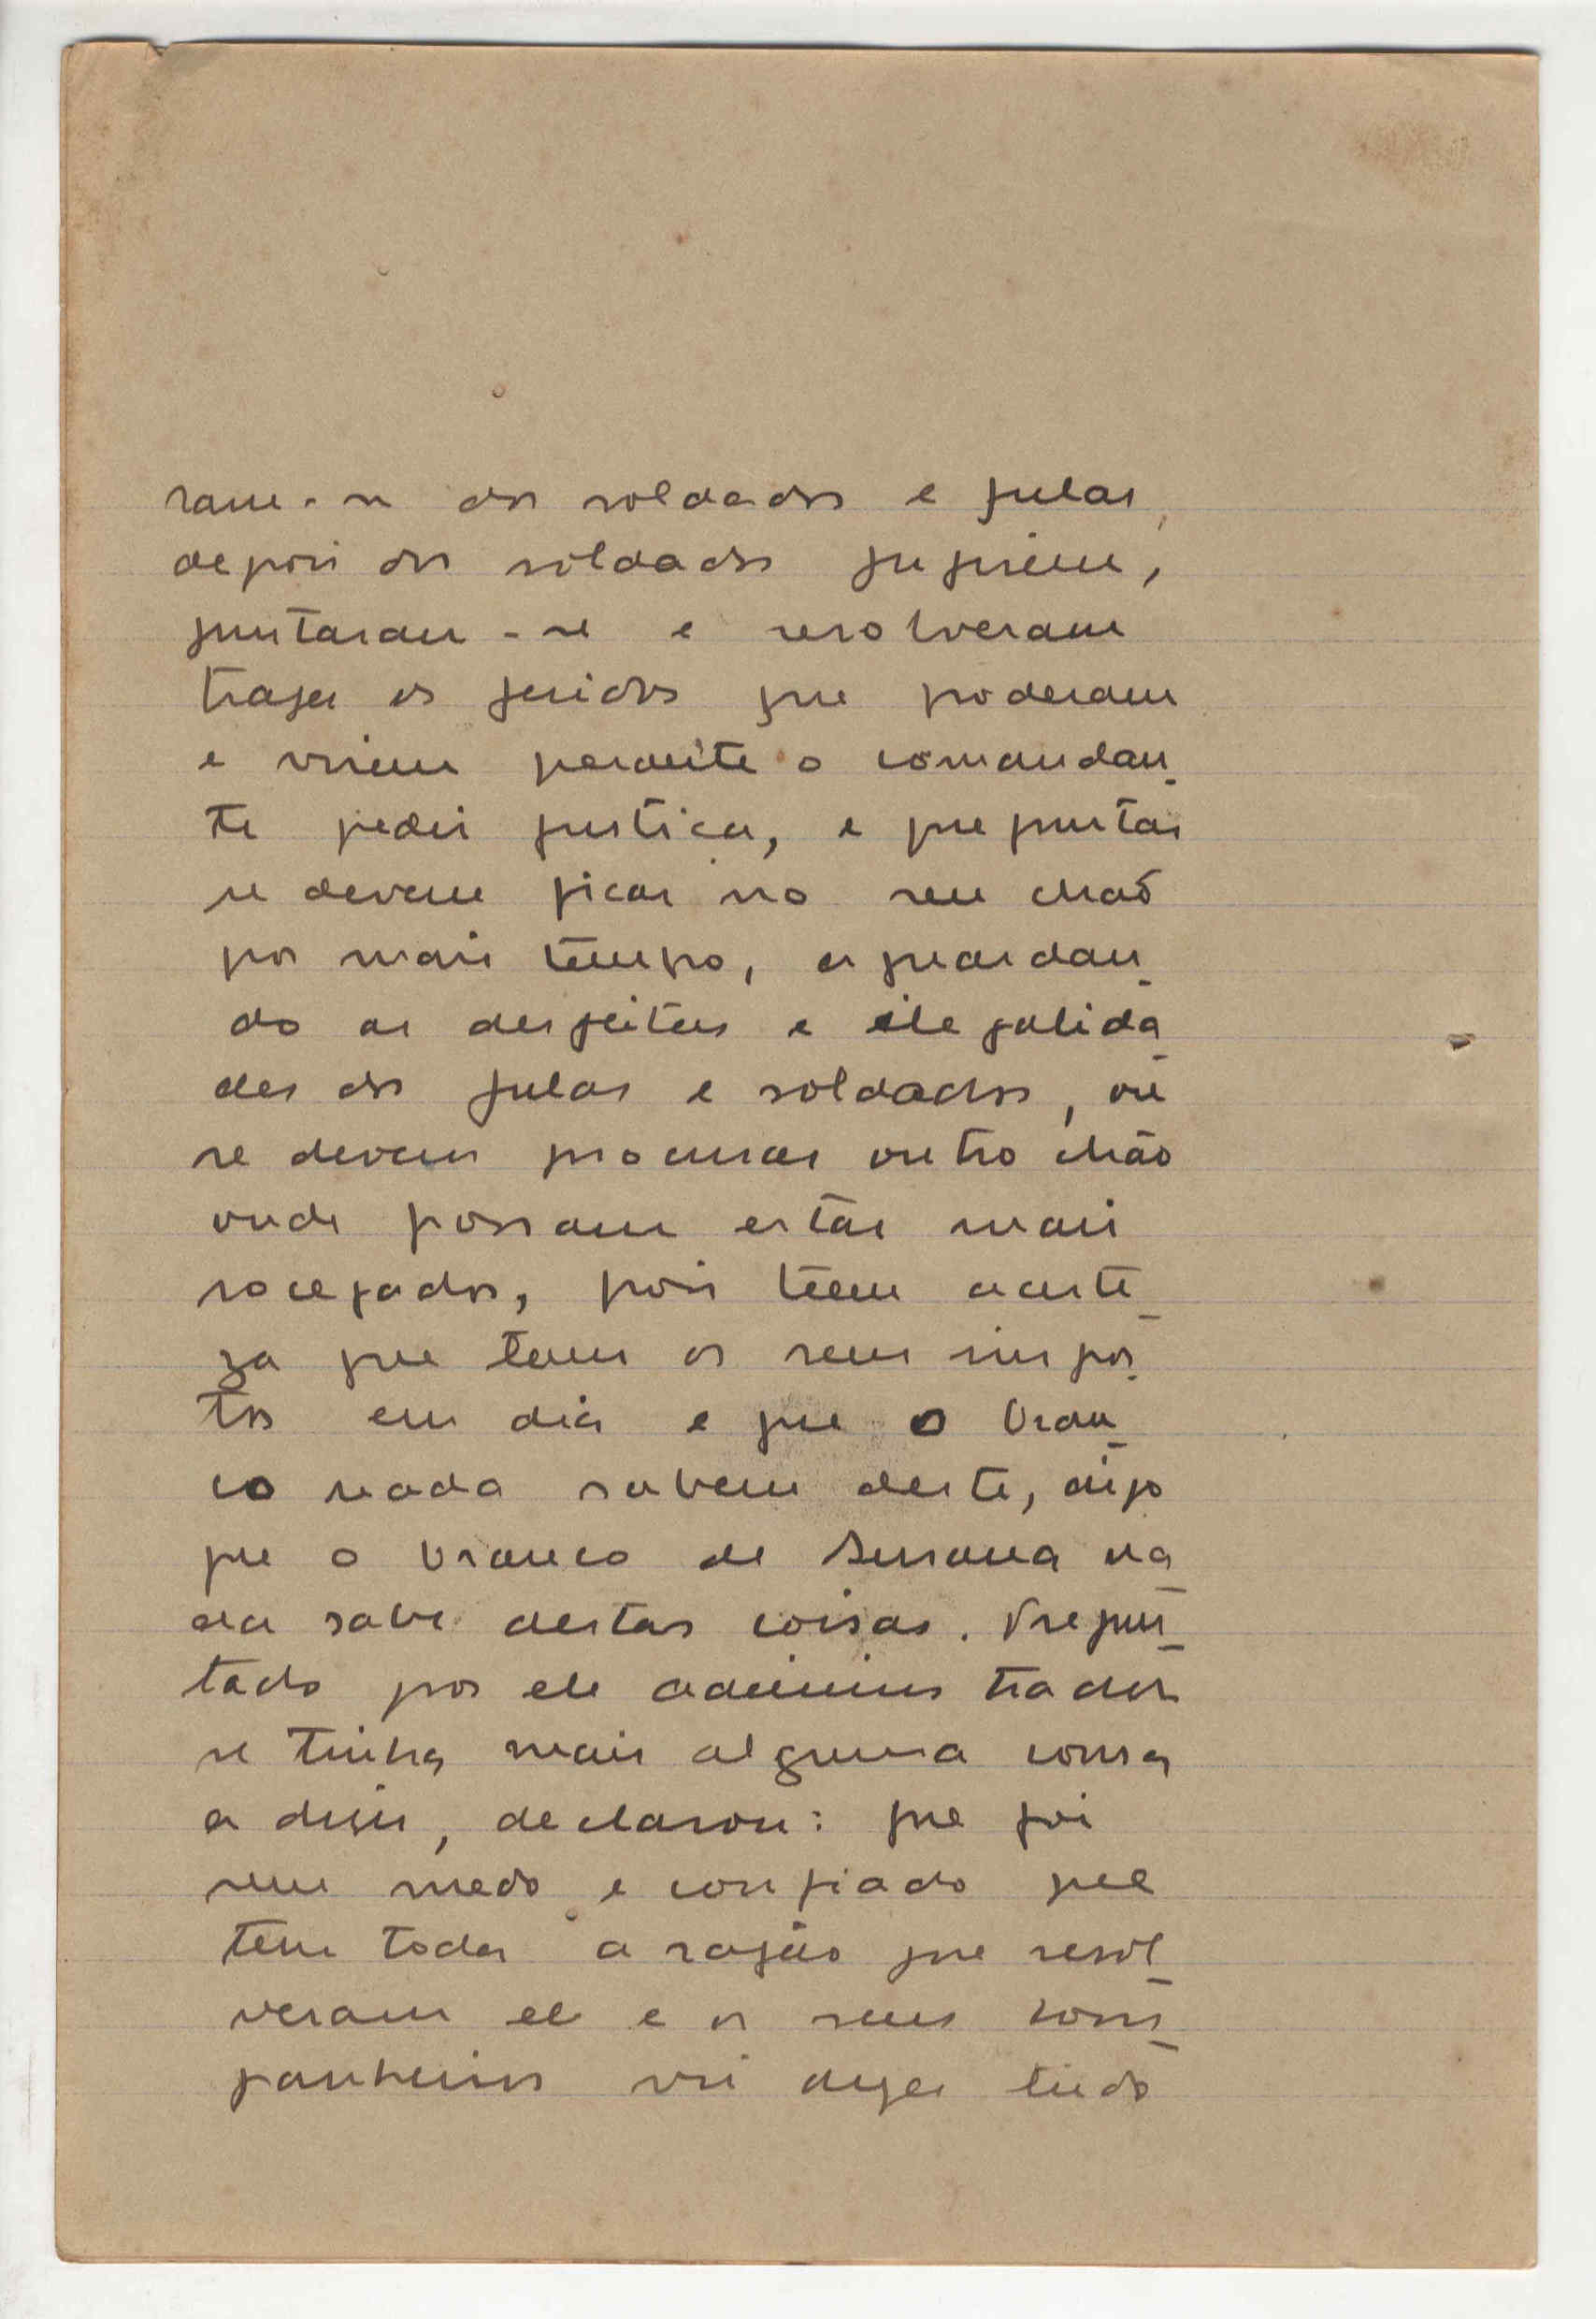 ram-se dos soldados e fulas,
depois dos soldados fugirem,
juntaram-se e resolveram
trazer os feridos que poderam
e virem perante o comandan_
te pedir justiça, e preguntar
se devem ficar no seu chaõ
por mais tempo, aguardan_
do as desfeitas e ilegalida_
des dos fulas e soldados, ou
se devem procurar outro chão
onde possam estar mais
socegados, pois teem acerte_
za que tem os seus impos_
tos em dia e que o bran_
co nada sabem deste, digo
que o branco de Sumana na_
da sabe destas coisas. Pregun_
tado por ele administrador
se tinha mais alguma cousa
a dizer, declarou: que foi
sem medo e confiado que
tem toda a razão que resol_
veram ele e os seus com_
panheiros vir dizer tudo